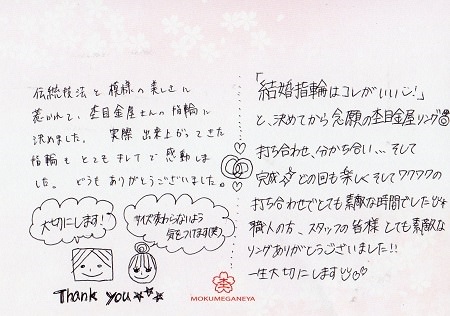 伝統技法と模様の美しさに
惹かれて、杢目金屋さんの指輪に
決めました。実際出来上がってきた
指輪もとてもキレイで感動しま
した。どうもありがとうございました。
大切にします!
サイズ変わらないよう
気をつけます(笑)
Thank you
「結婚指輪はコレがいい!」
と、決めてから念願の杢目金屋リング
打ち合わせ、分かち合い…そして
完成 どの回も楽しくそしてワクワクの
打ち合わせでとても素敵な時間でした
職人の方、スタッフの皆様とても素敵な
リングありがとうございました!!
一生大切にします
MOKUMEGANEYA